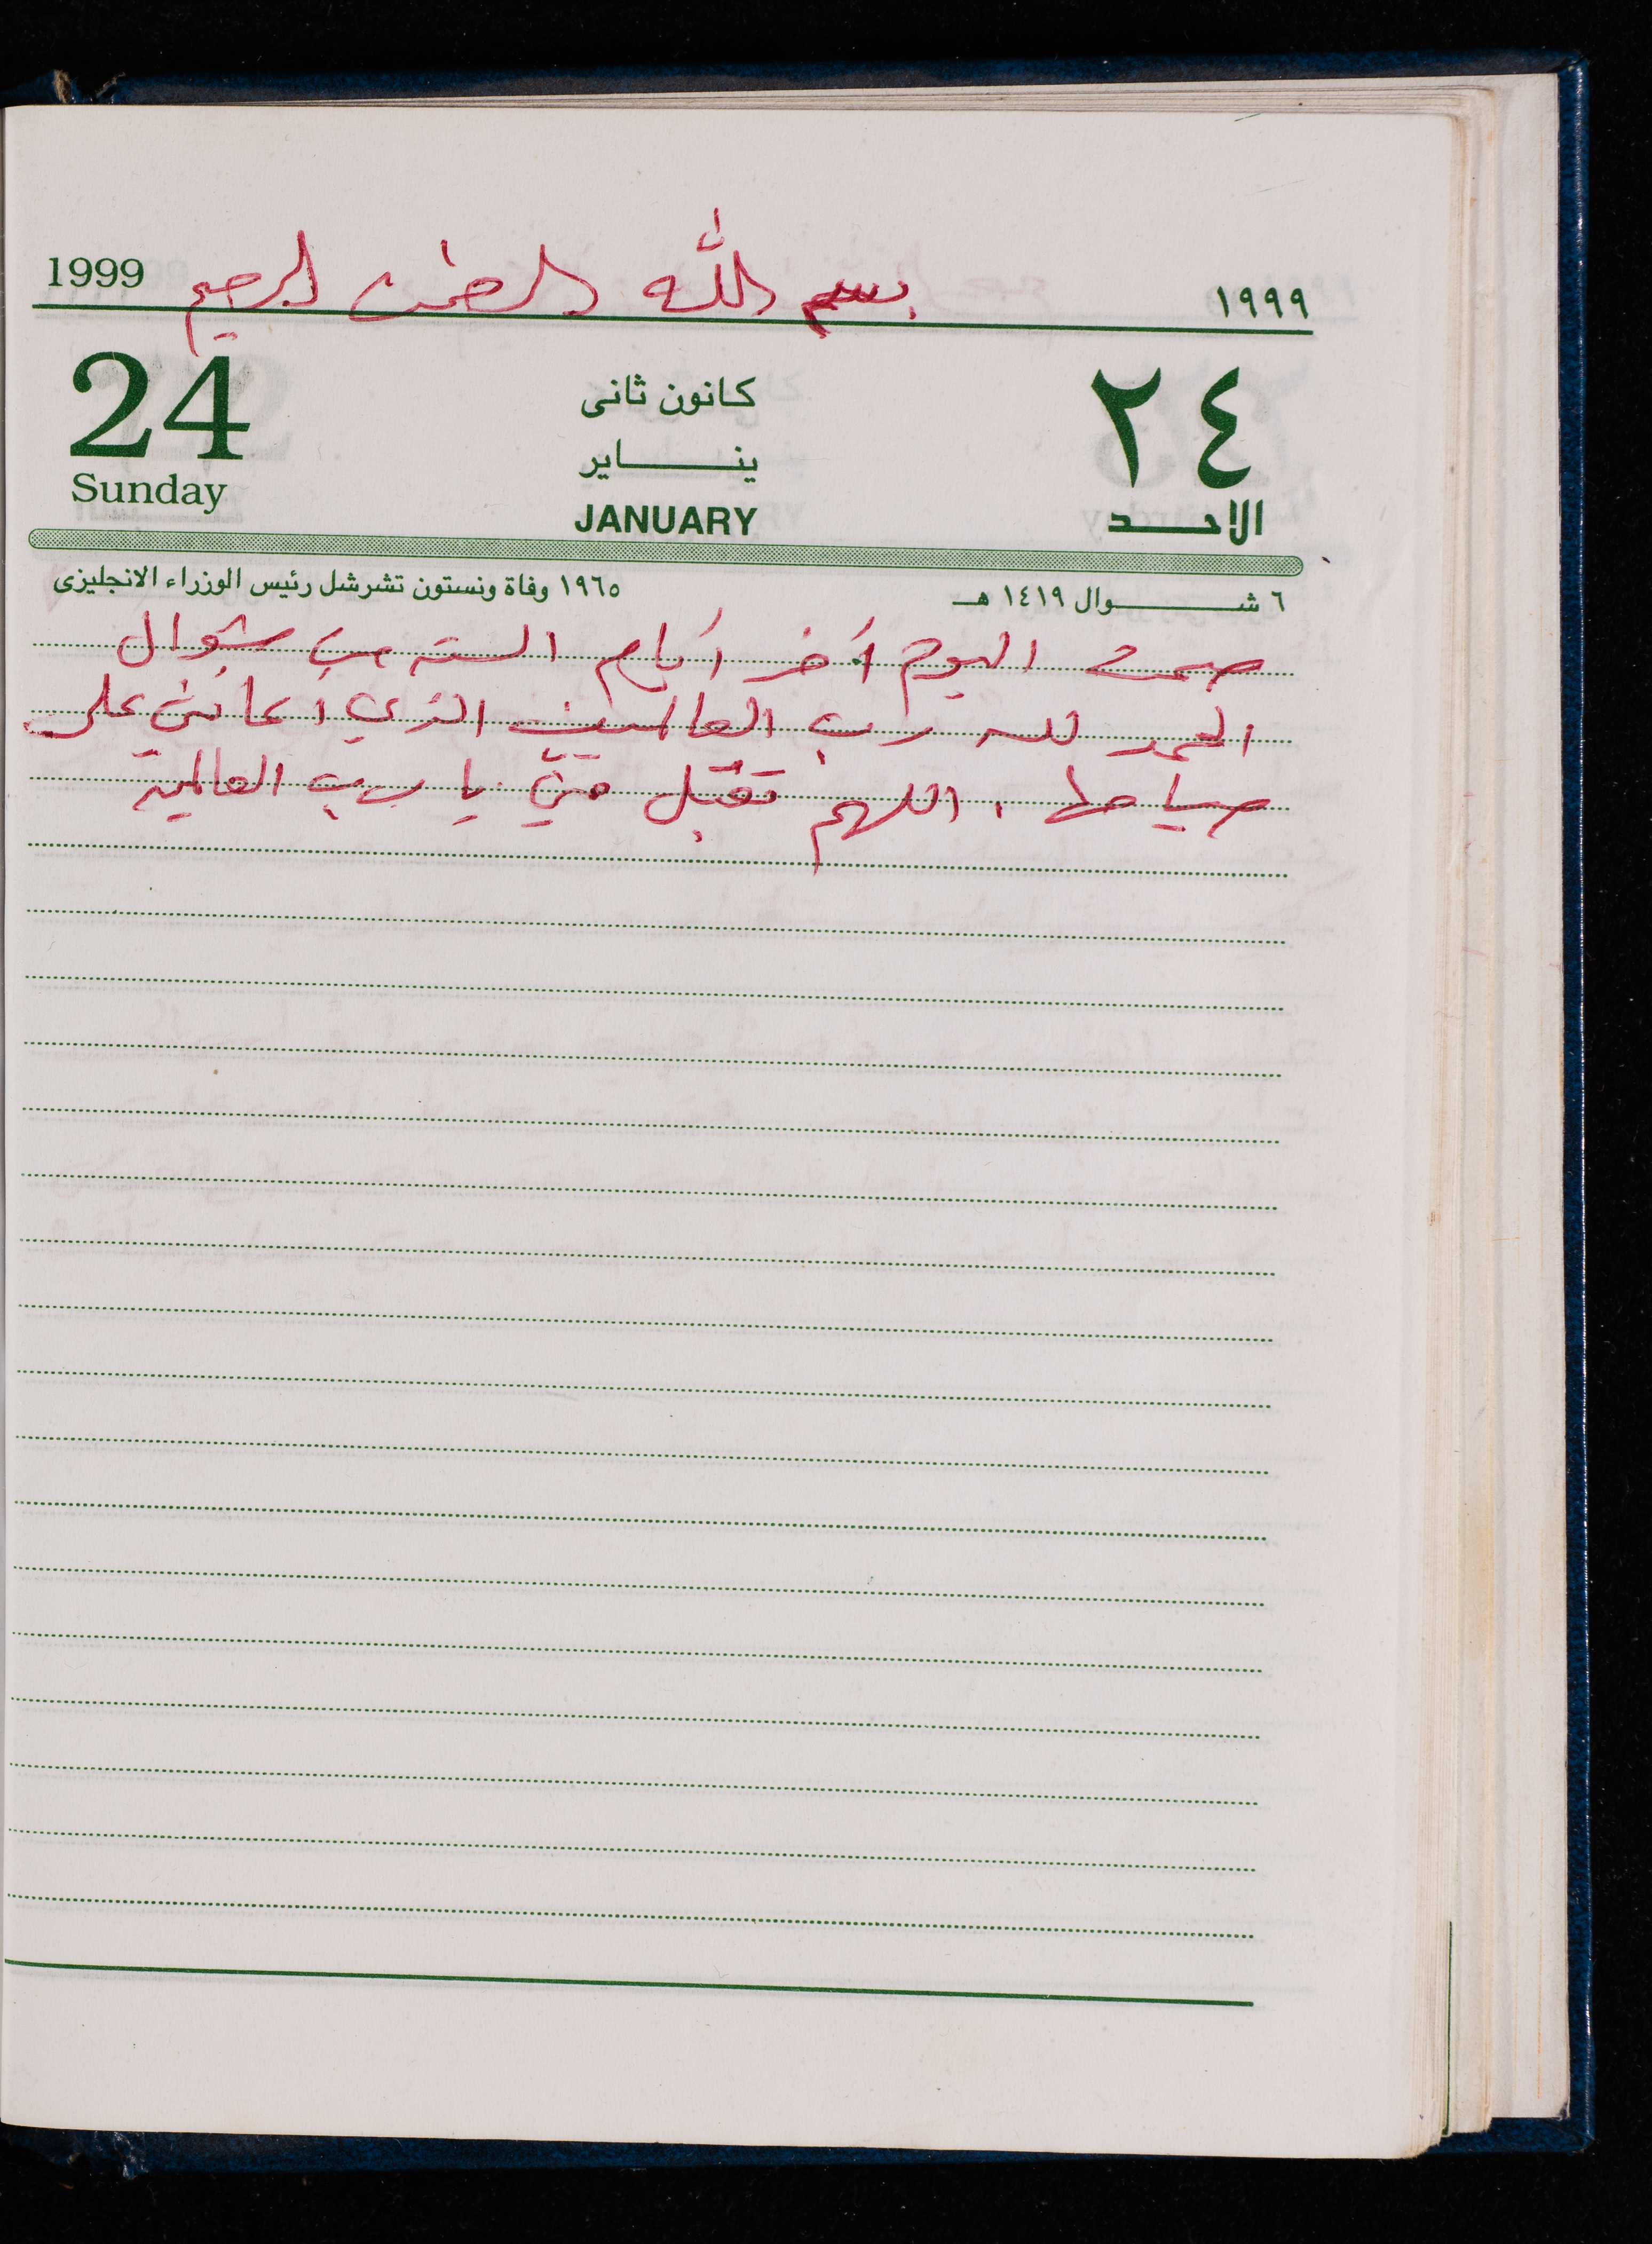 بسم الله الرحمن الرحيم
1999 ١٩٩٩
24 كانون ثانى ٢٤
ينـــــاير
Sunday JANUARY الاحـــد
٦ شـــــوال ١٤١٩ هـ ١٩٦٥ وفاة ونستون تشرشل رئيس الوزراء الانجليزى
صمت اليوم آخر أيام الستة من شوال
الحمد لله رب العالمين الذي أعانني على
صيامها. اللهم تقبّل منّي يا رب العالمين